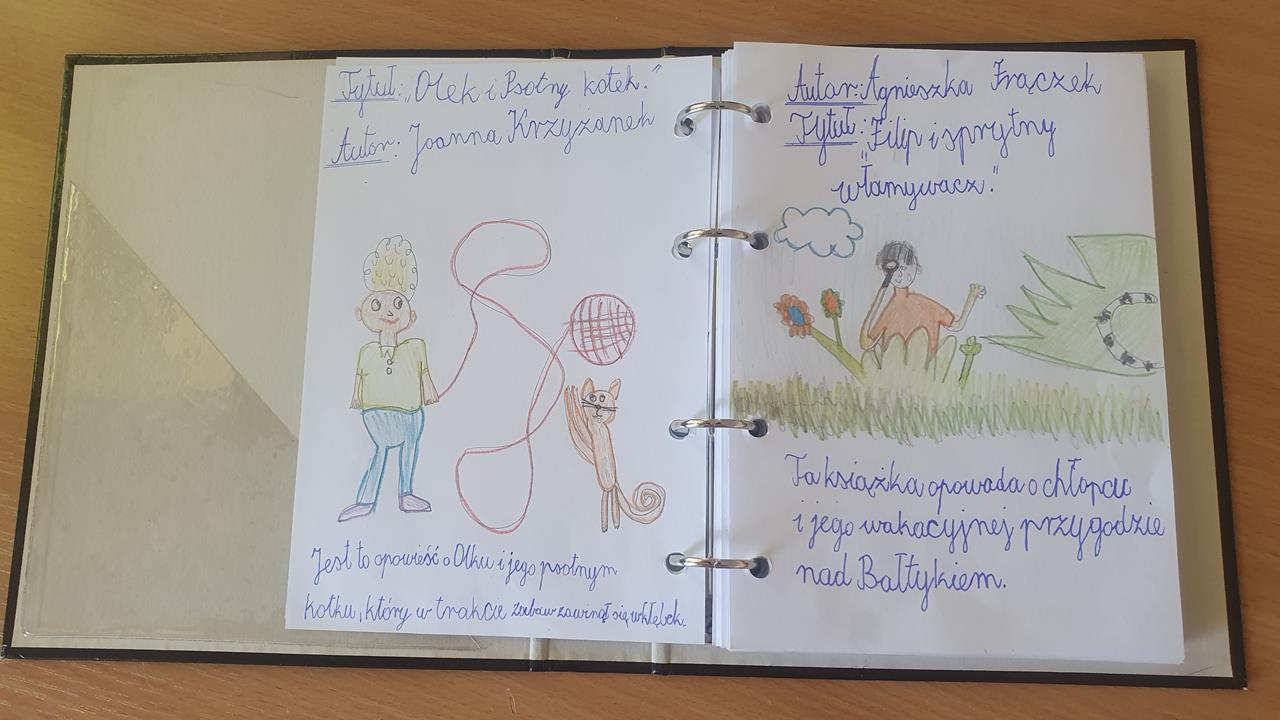 Tytuł: „Olek i Psotny kotek."
Autor: Joanna Krzyżanek
Jest to opowieść o Olku i jego psotnym
kotku, który w trakcie zabaw zawinął się w kłębek.
Autor: Agnieszka Frączek
Tytuł: „Filip i sprytny
włamywacz."
Ta książka opowiada o chłopcu
i jego wakacyjnej przygodzie
nad Bałtykiem.